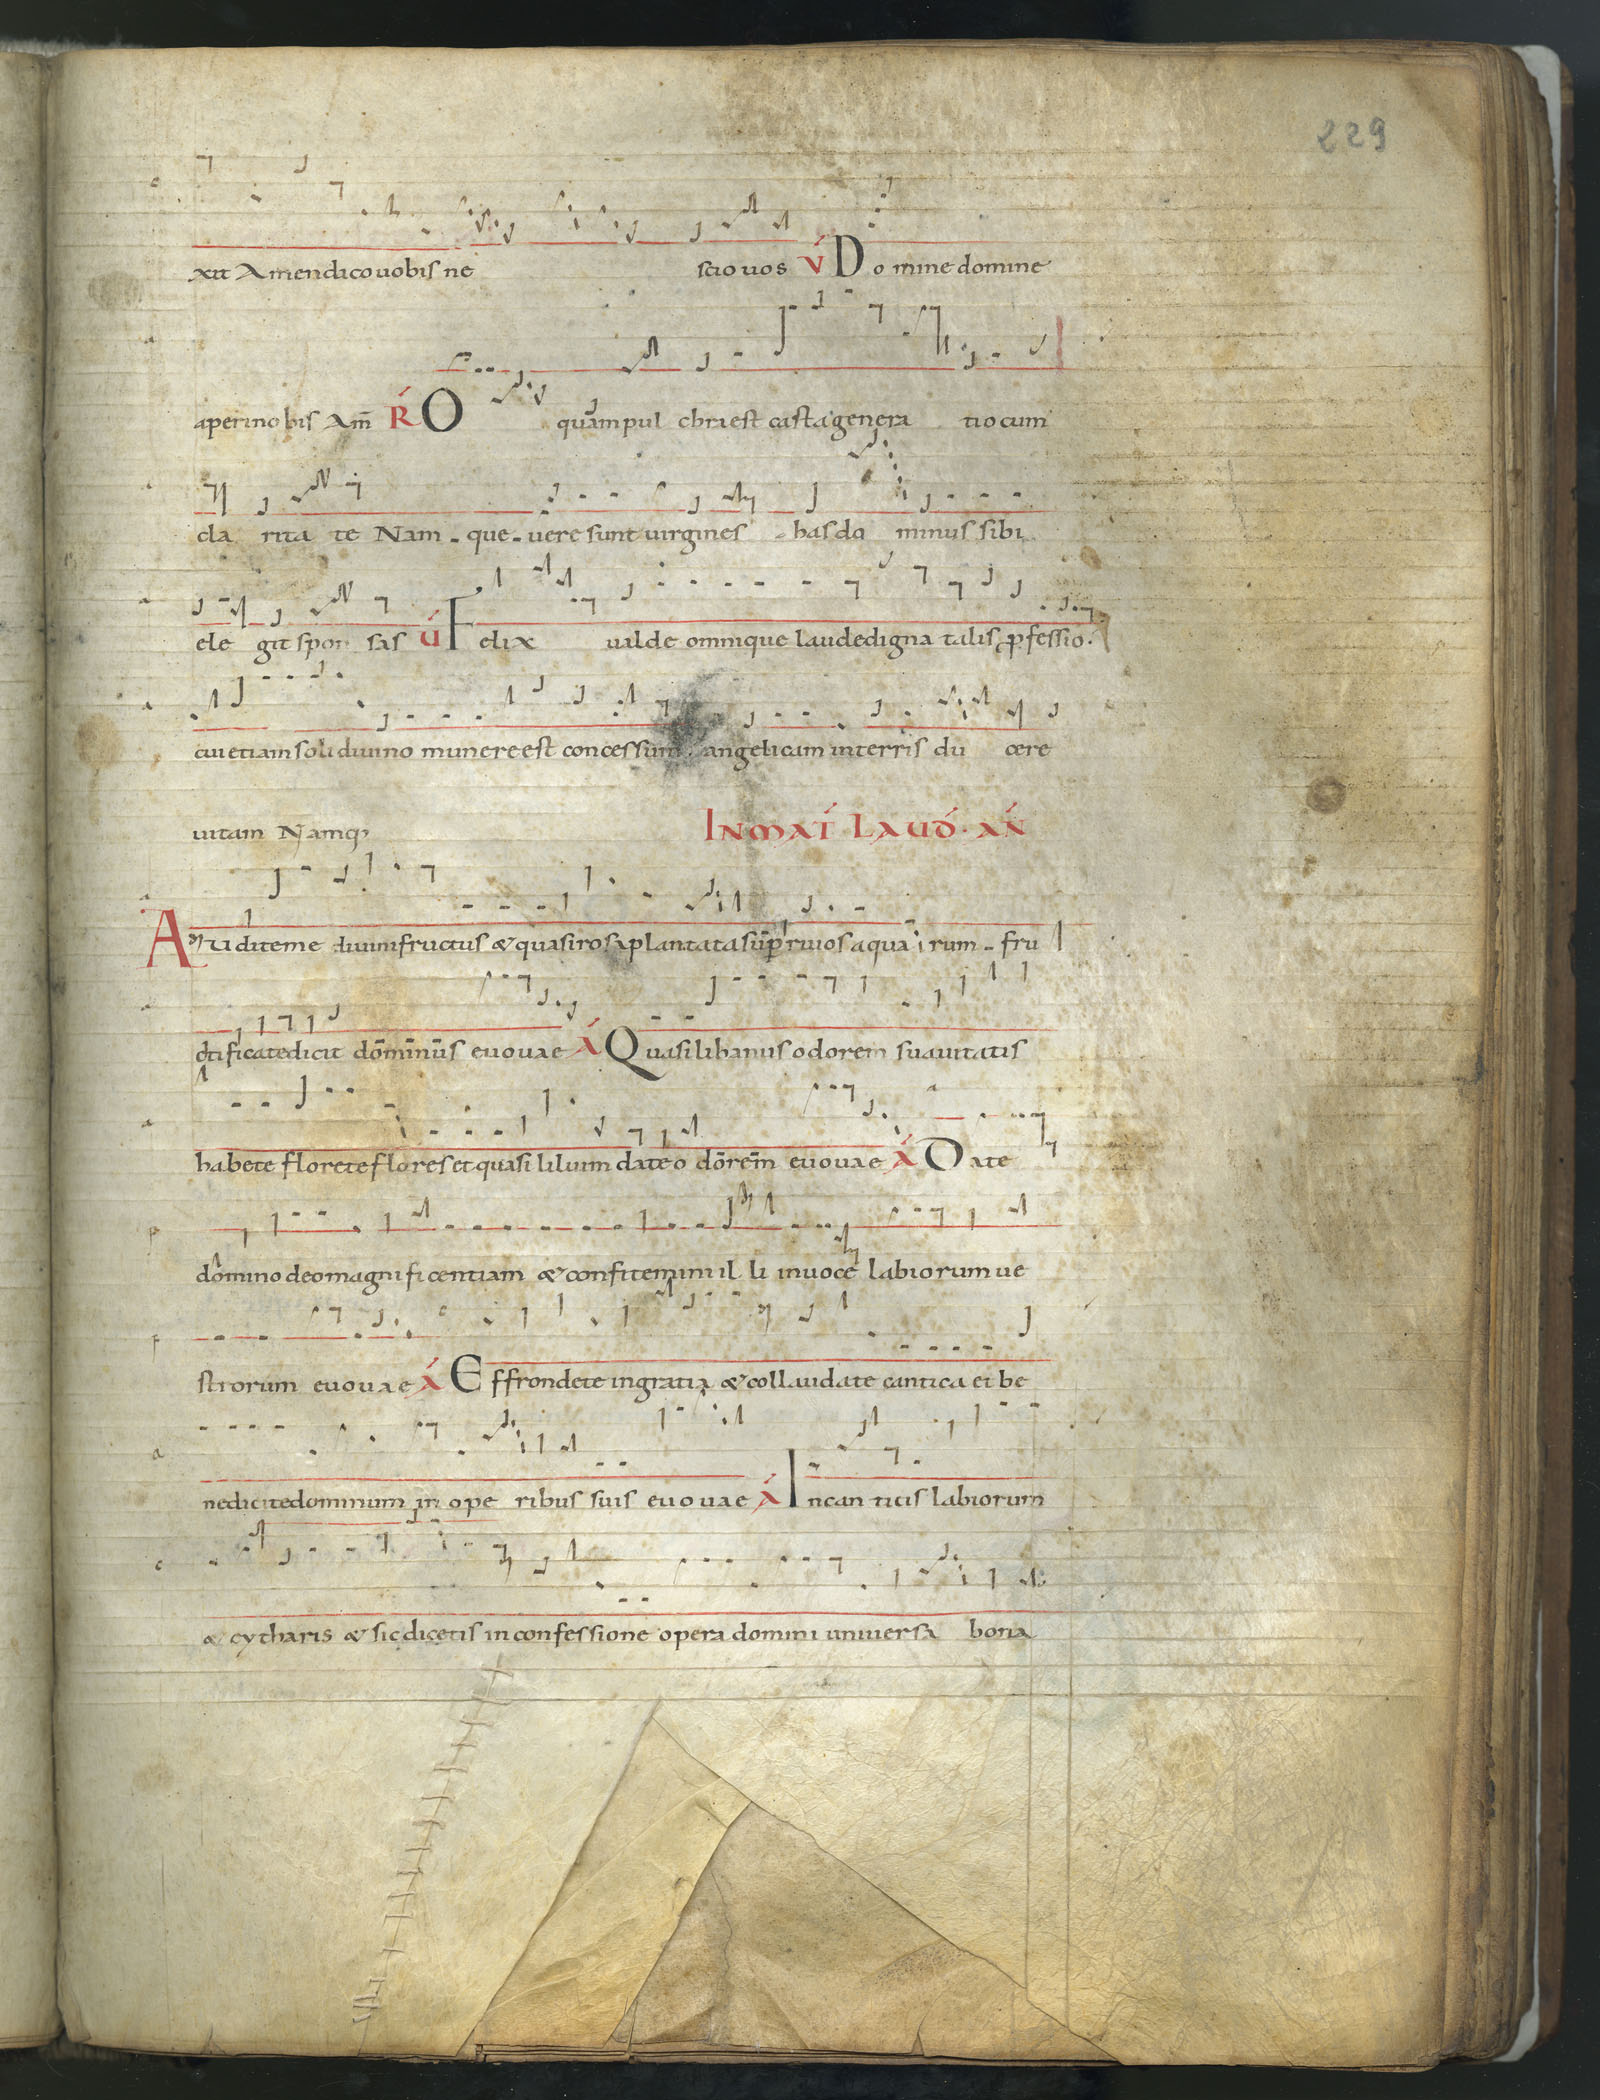 229
xit Amendico uobis ne scio uos V́ Domine domine
aperi nobis Am̄ Ŕ O quam pul chra est casta genera tio cum
cla rita te Nam - que - uere sunt uirgines - has do minus sibi
ele git spon sas Ú Felix ualde omnique laude digna talis ꝓfessio.
cui etiam soli diuino munere est concessum angelicam in terris du cere
uitam Namq;
INMAT́ LAUD́. AŃ
Audite me diuini fructus & quasi rosa plantata sup̄ riuos aqua rum - fru
ctificate dicit dominus euouae Á Quasi libanus odorem suauitatis
habete florete flores et quasi lilium date o dorem euouae Á Date
domino deo magnificentiam & confitemini il li in uoce labiorum ue
strorum euouae Á Effrondete in gratia & collaudate cantica et be
nedicite dominum in ope ribus suis euouae Á In can ticis labiorum
& cytharis & sic dicetis in confessione opera domini uniuersa bona